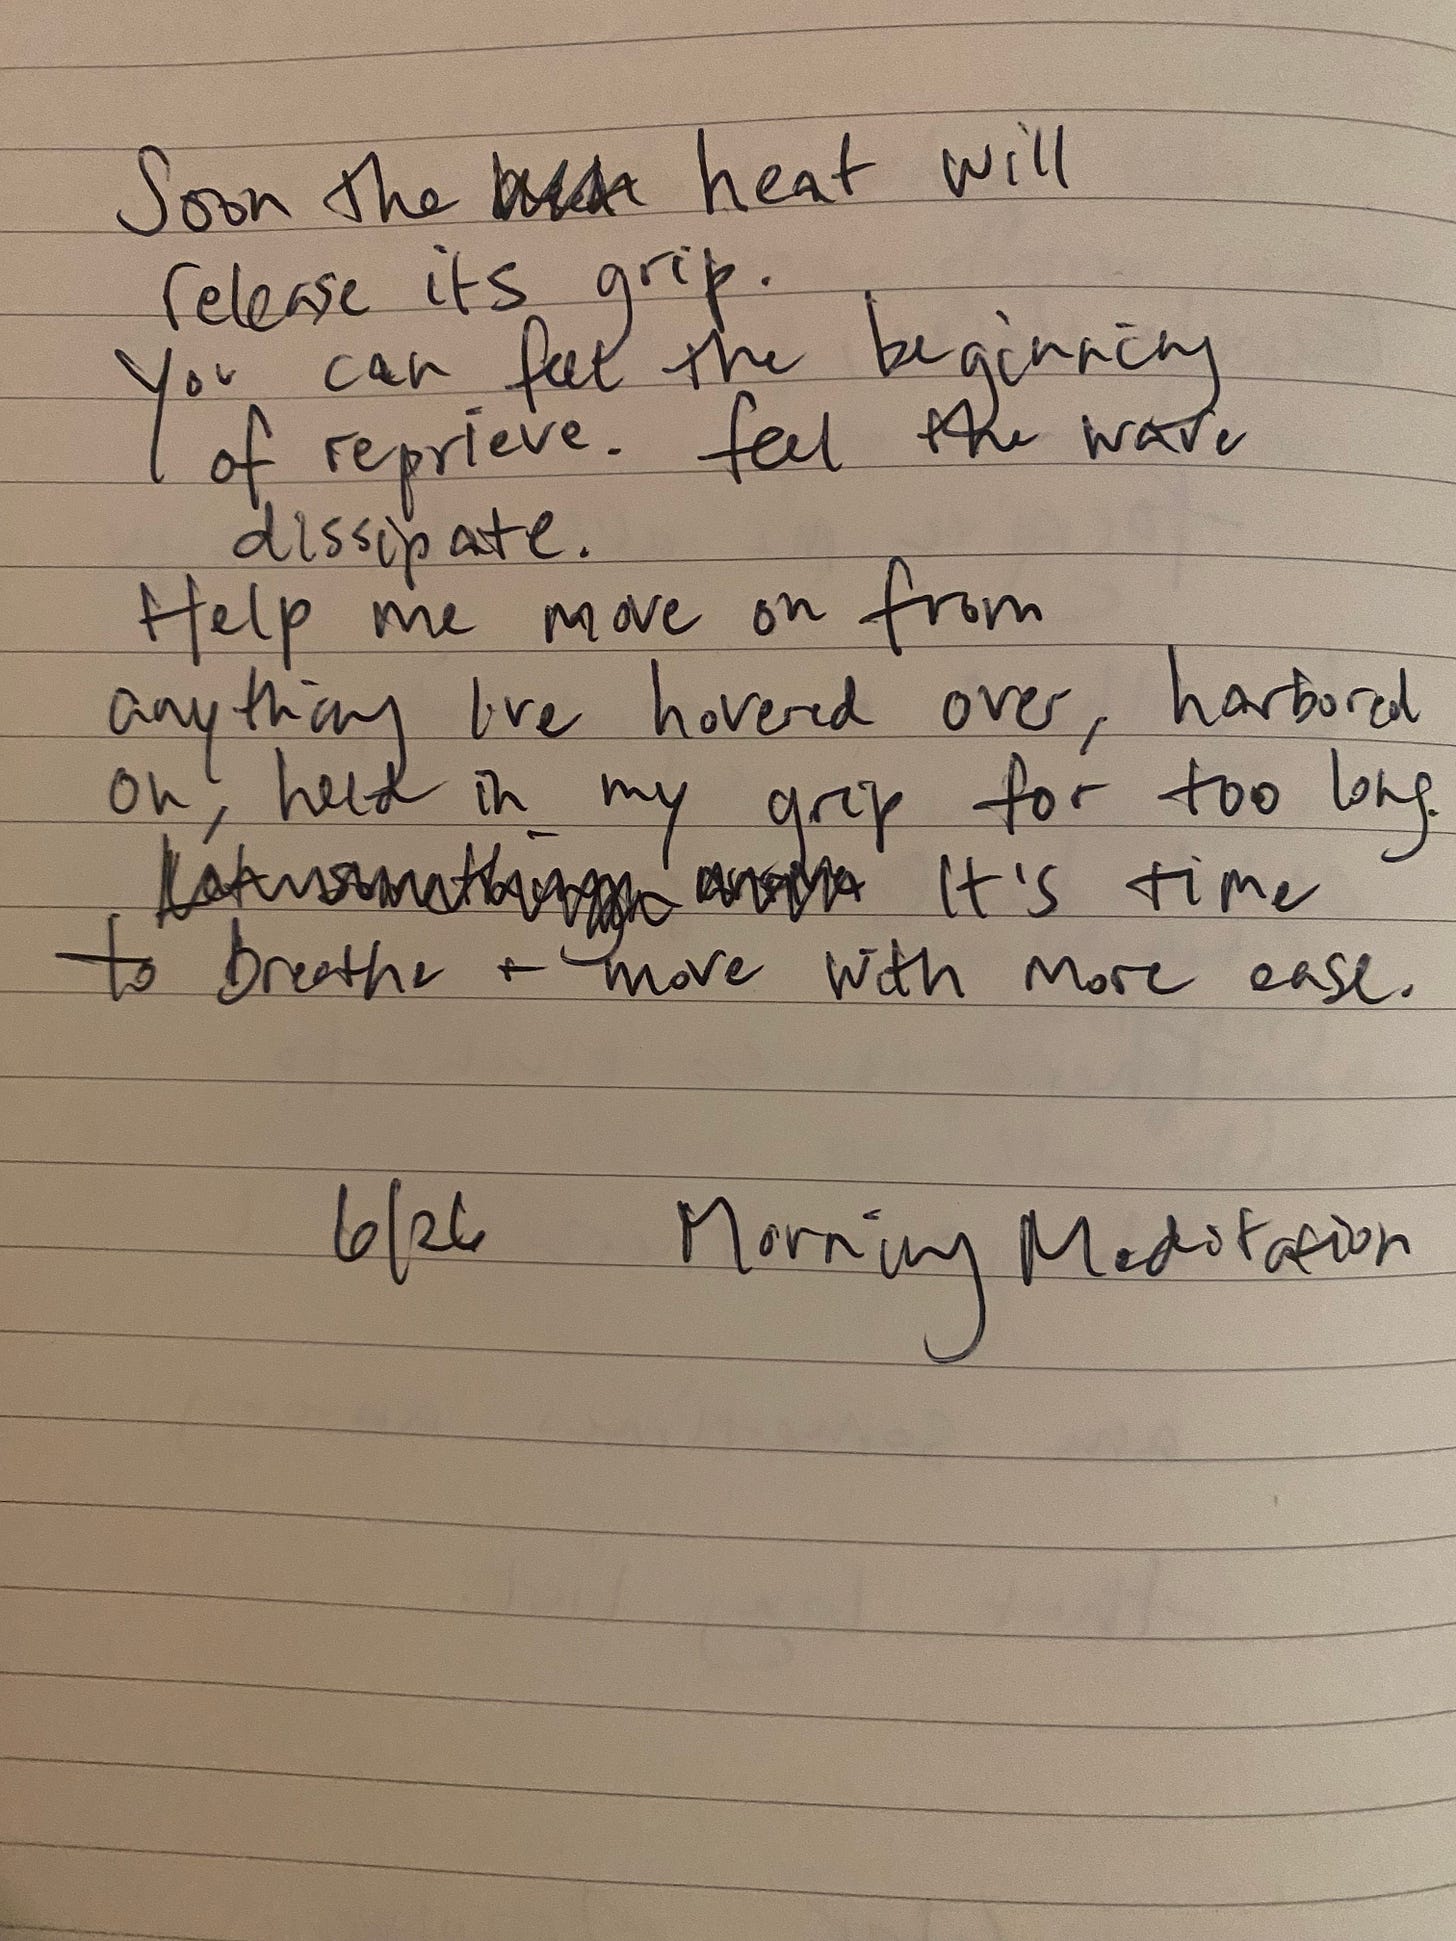 Soon the heat will
release its grip.
You can feel the beginning
of reprieve. feel the wave
dissipate.
Help me move on from
anything I've hovered over, harbored
on, held in my grip for too long.
It's time
to breathe + move with more ease.
6/26 Morning Meditation